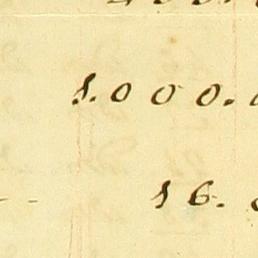 1.000.
16.